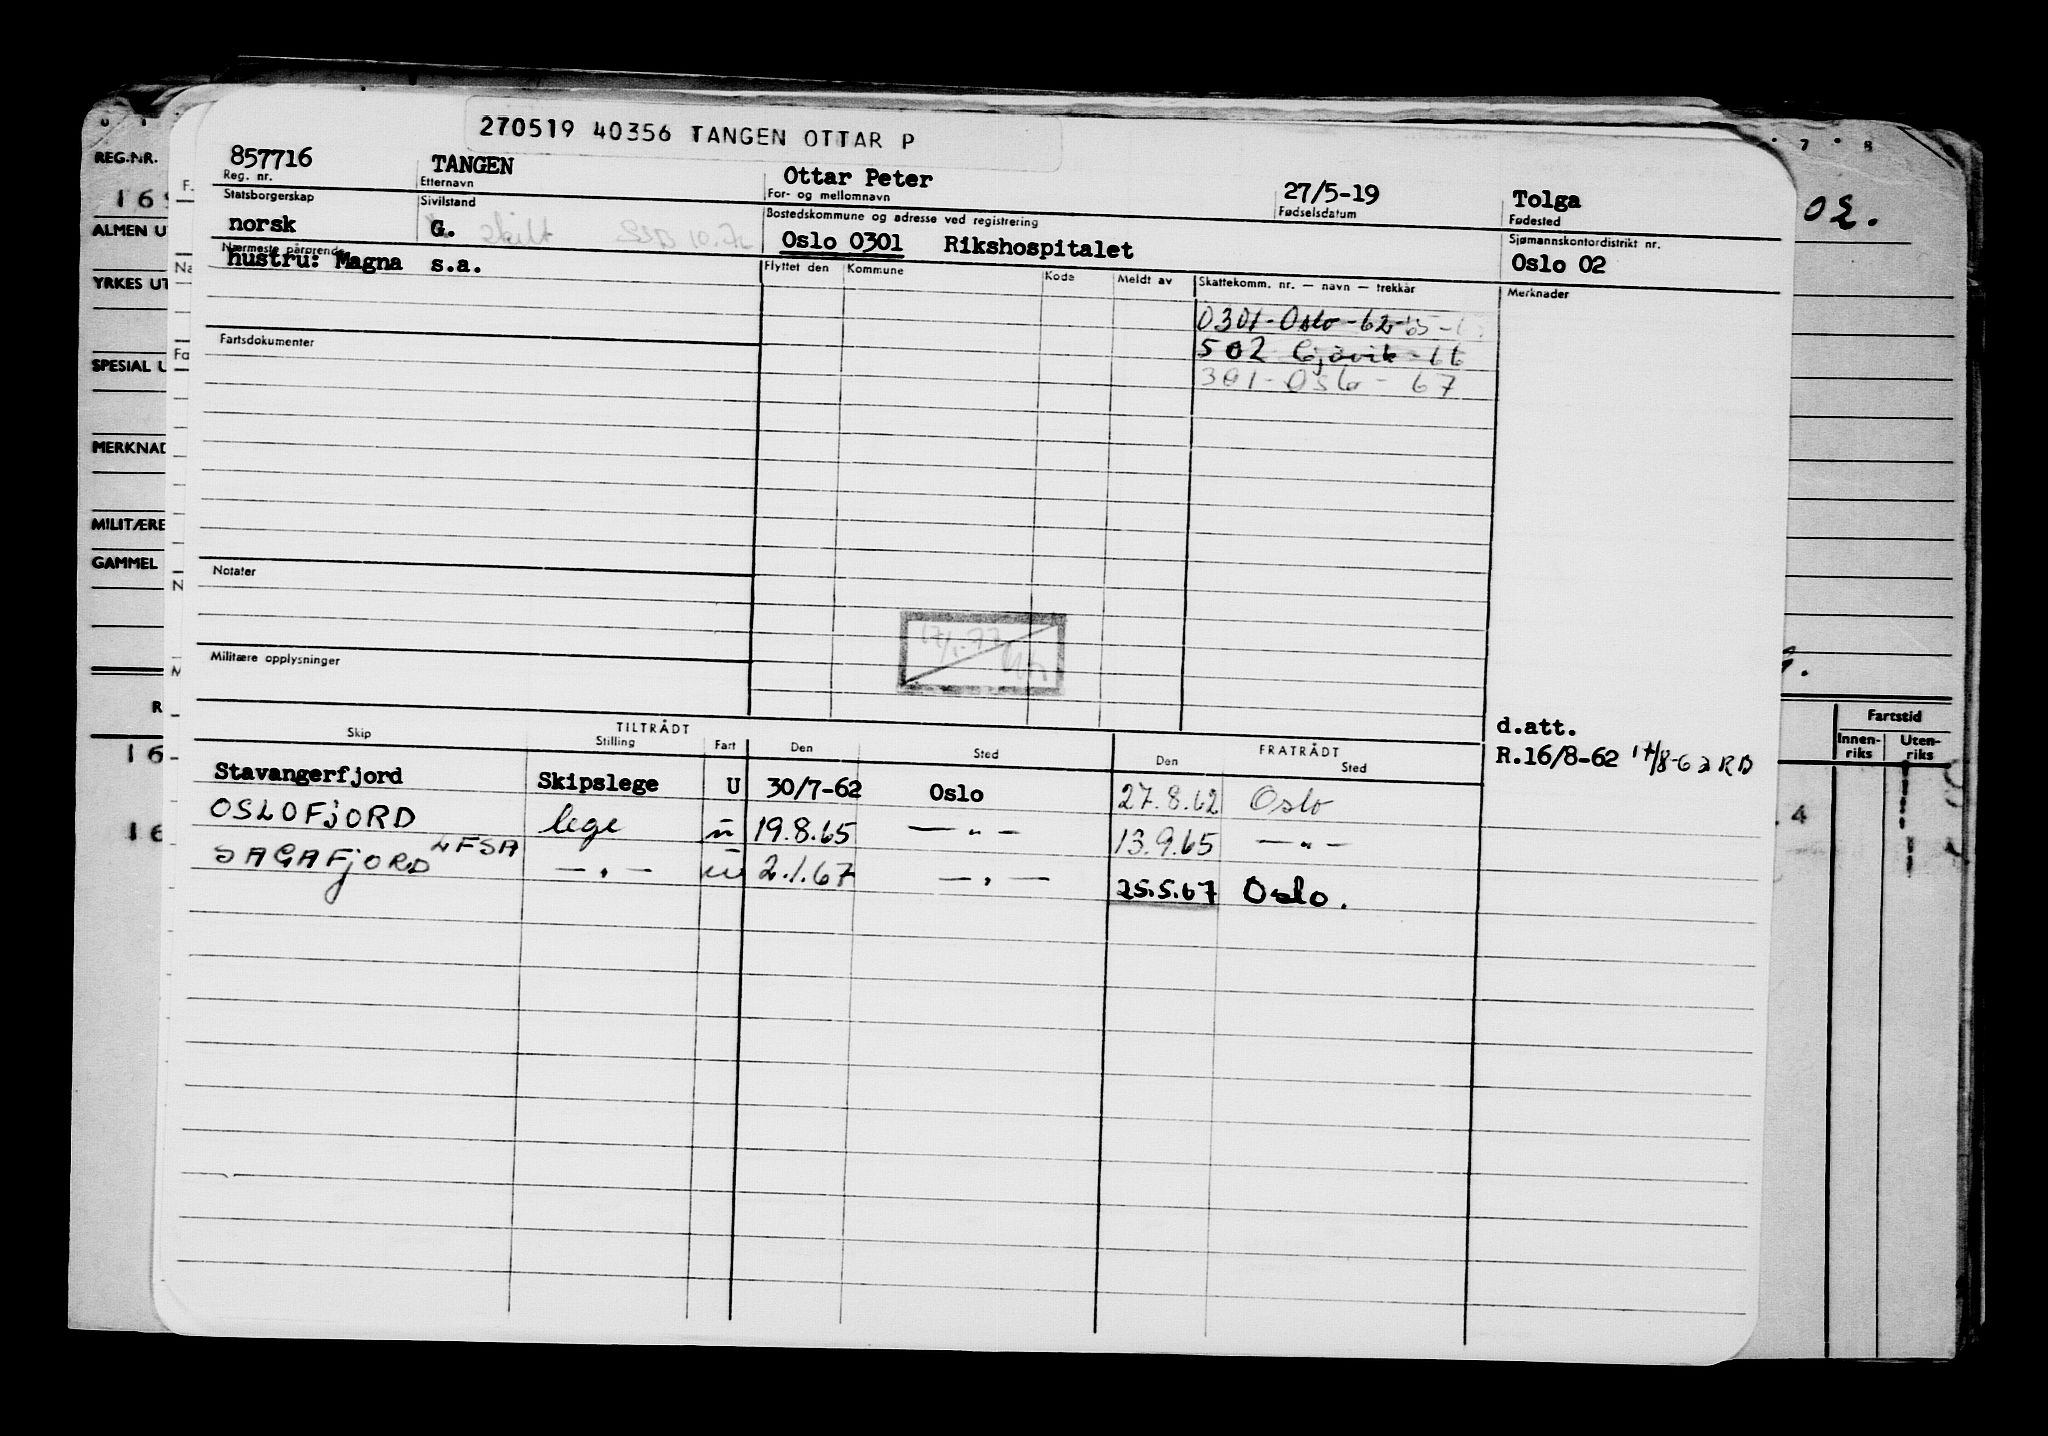 270519 40356 TANGEN OTTAR P
857716 TANGEN Ottar Peter 27/5-19 Tolga
Reg. nr. Etternavn For- og mellomnavn Fødselsdatum Fødested
Statsborgerskap Sivilstand Bostedskommune og adresse ved registrering Sjømannskontordistrikt nr.
norsk G. skilt Oslo 0301 Rikshospitalet Oslo 02
Nærmeste pårørende
hustru: Magna s.a.
Flyttet den Kommune Kode Meldt av Skattekomm. nr. — navn — trekkår Merknader
0301-Oslo-62-65-
Fartsdokumenter
502 Gjøvik-66
301-Oslo-67
Notater
Militære opplysninger
d.att.
R.16/8-62 17/8-62 RB
TILTRÅDT FRATRÅDT
Skip Stilling Fart Den Sted Den Sted
Stavangerfjord Skipslege U 30/7-62 Oslo 27.8.62 Oslo
OSLOFJORD lege u 19.8.65 — " — 13.9.65 — " —
SAGAFJORD LFSA — " — u 2.1.67 — " — 25.5.67 Oslo.
REG.NR.
ALMEN U
YRKES UT
SPESIAL U
MERKNAD
MILITÆRE
GAMMEL
02.
7 8
Fartstid
Innen-
riks
Uten-
riks